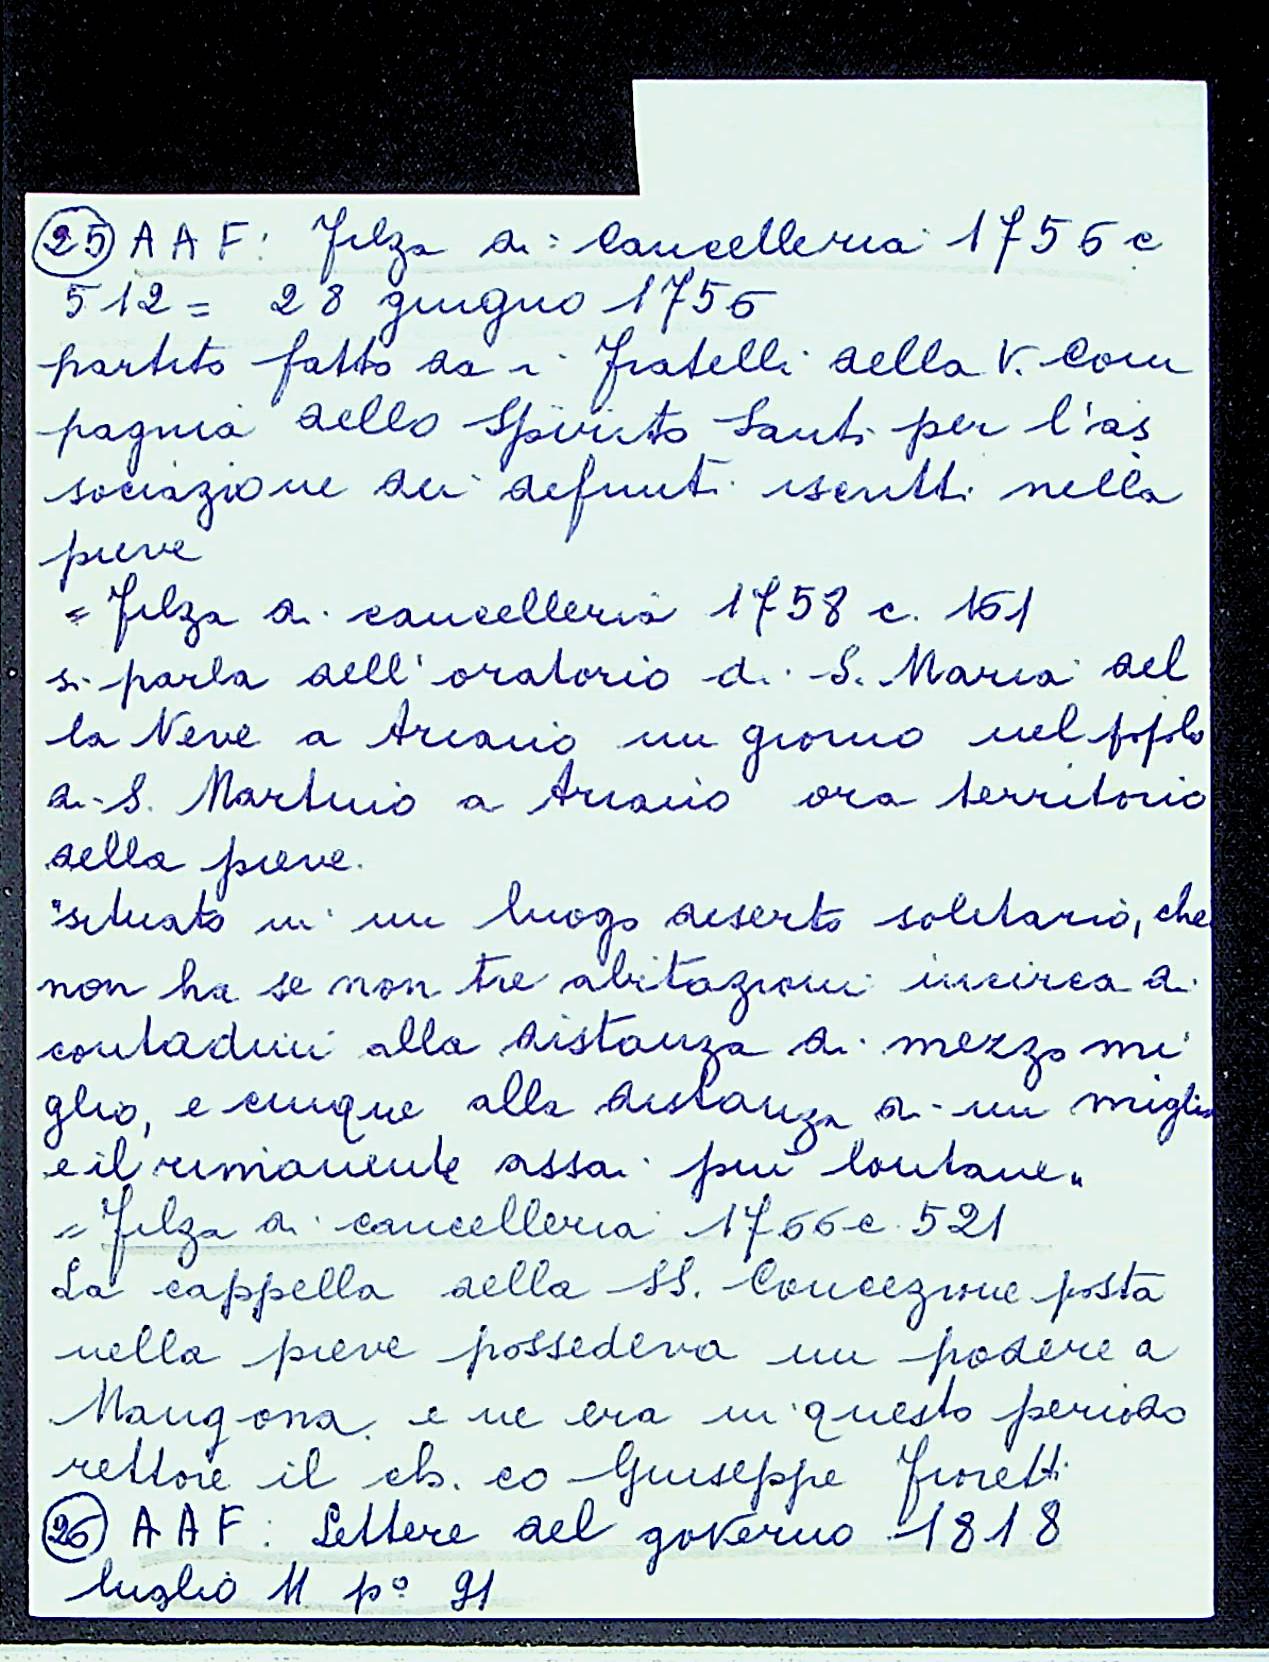 25 AAF: Filza di Cancelleria 1756 c
512 = 28 giugno 1756
partito fatto da i Fratelli della V. Com
pagnia dello Spirito Santi per l'as
sociazione dei defunti iscritti nella
pieve
= Filza di cancelleria 1758 c. 161
si parla dell'oratorio di S. Maria del
la Neve a Ariano un giorno nel popolo
di S. Martino a Ariano ora territorio
della pieve.
"situato in un luogo deserto solitario, che
non ha se non tre abitazioni incirca di
contadini alla distanza di mezzo mi
glio, e cinque alla distanza di un miglio
e il rimanente assai più lontane"
= Filza di cancelleria 1766 c. 521
La cappella della SS. Concezione posta
nella pieve possedeva un podere a
Mangona e ne era in questo periodo
rettore il ch. co Giuseppe Fioretti
26 AAF: Lettere del governo 1818
luglio 11 p° 91